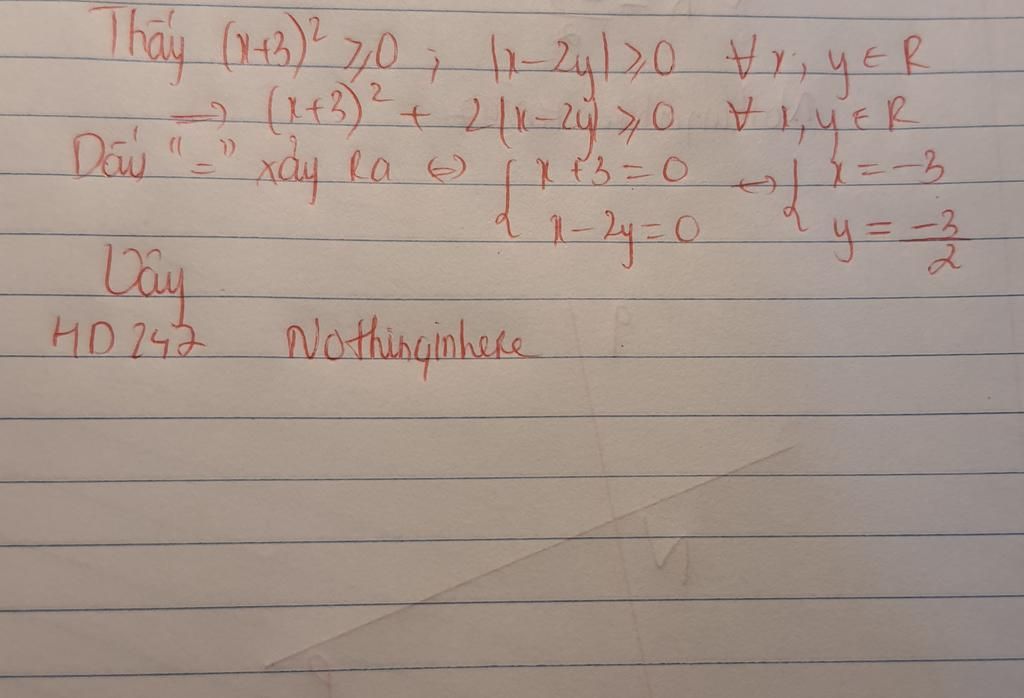 Thấy (x+3)² ⩾0 ; |x-2y| ⩾0 ∀ x, y ∈ R
⟹ (x+3)² + 2|x-2y| ⩾0 ∀ x, y ∈ R
Dấu "=" xảy Ra ⇔ { x+3=0 ⇔ { x=-3
x-2y=0 y = -3/2
Vậy
HD247 Nothinginhere